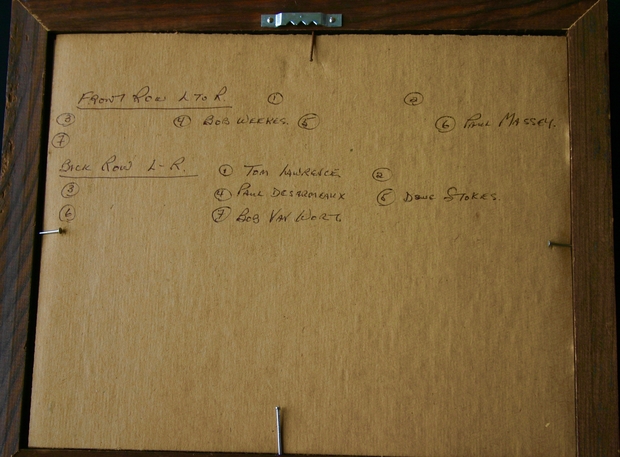 FRONT ROW L TO R. ① ②
③ ④ BOB WEEKES. ⑤ ⑥ PAUL MASSEY.
⑦
BACK ROW L-R. ① TOM LAWRENCE ②
③ ④ PAUL DESARMEAUX ⑤ DOUG STOKES.
⑥ ⑦ BOB VAN WORT.